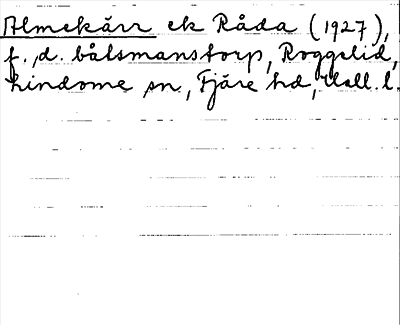 Almekärr ek Råda (1927),
f. d. båtsmanstorp, Roggelid,
Lindome sn, Fjäre hd, Hall. l.